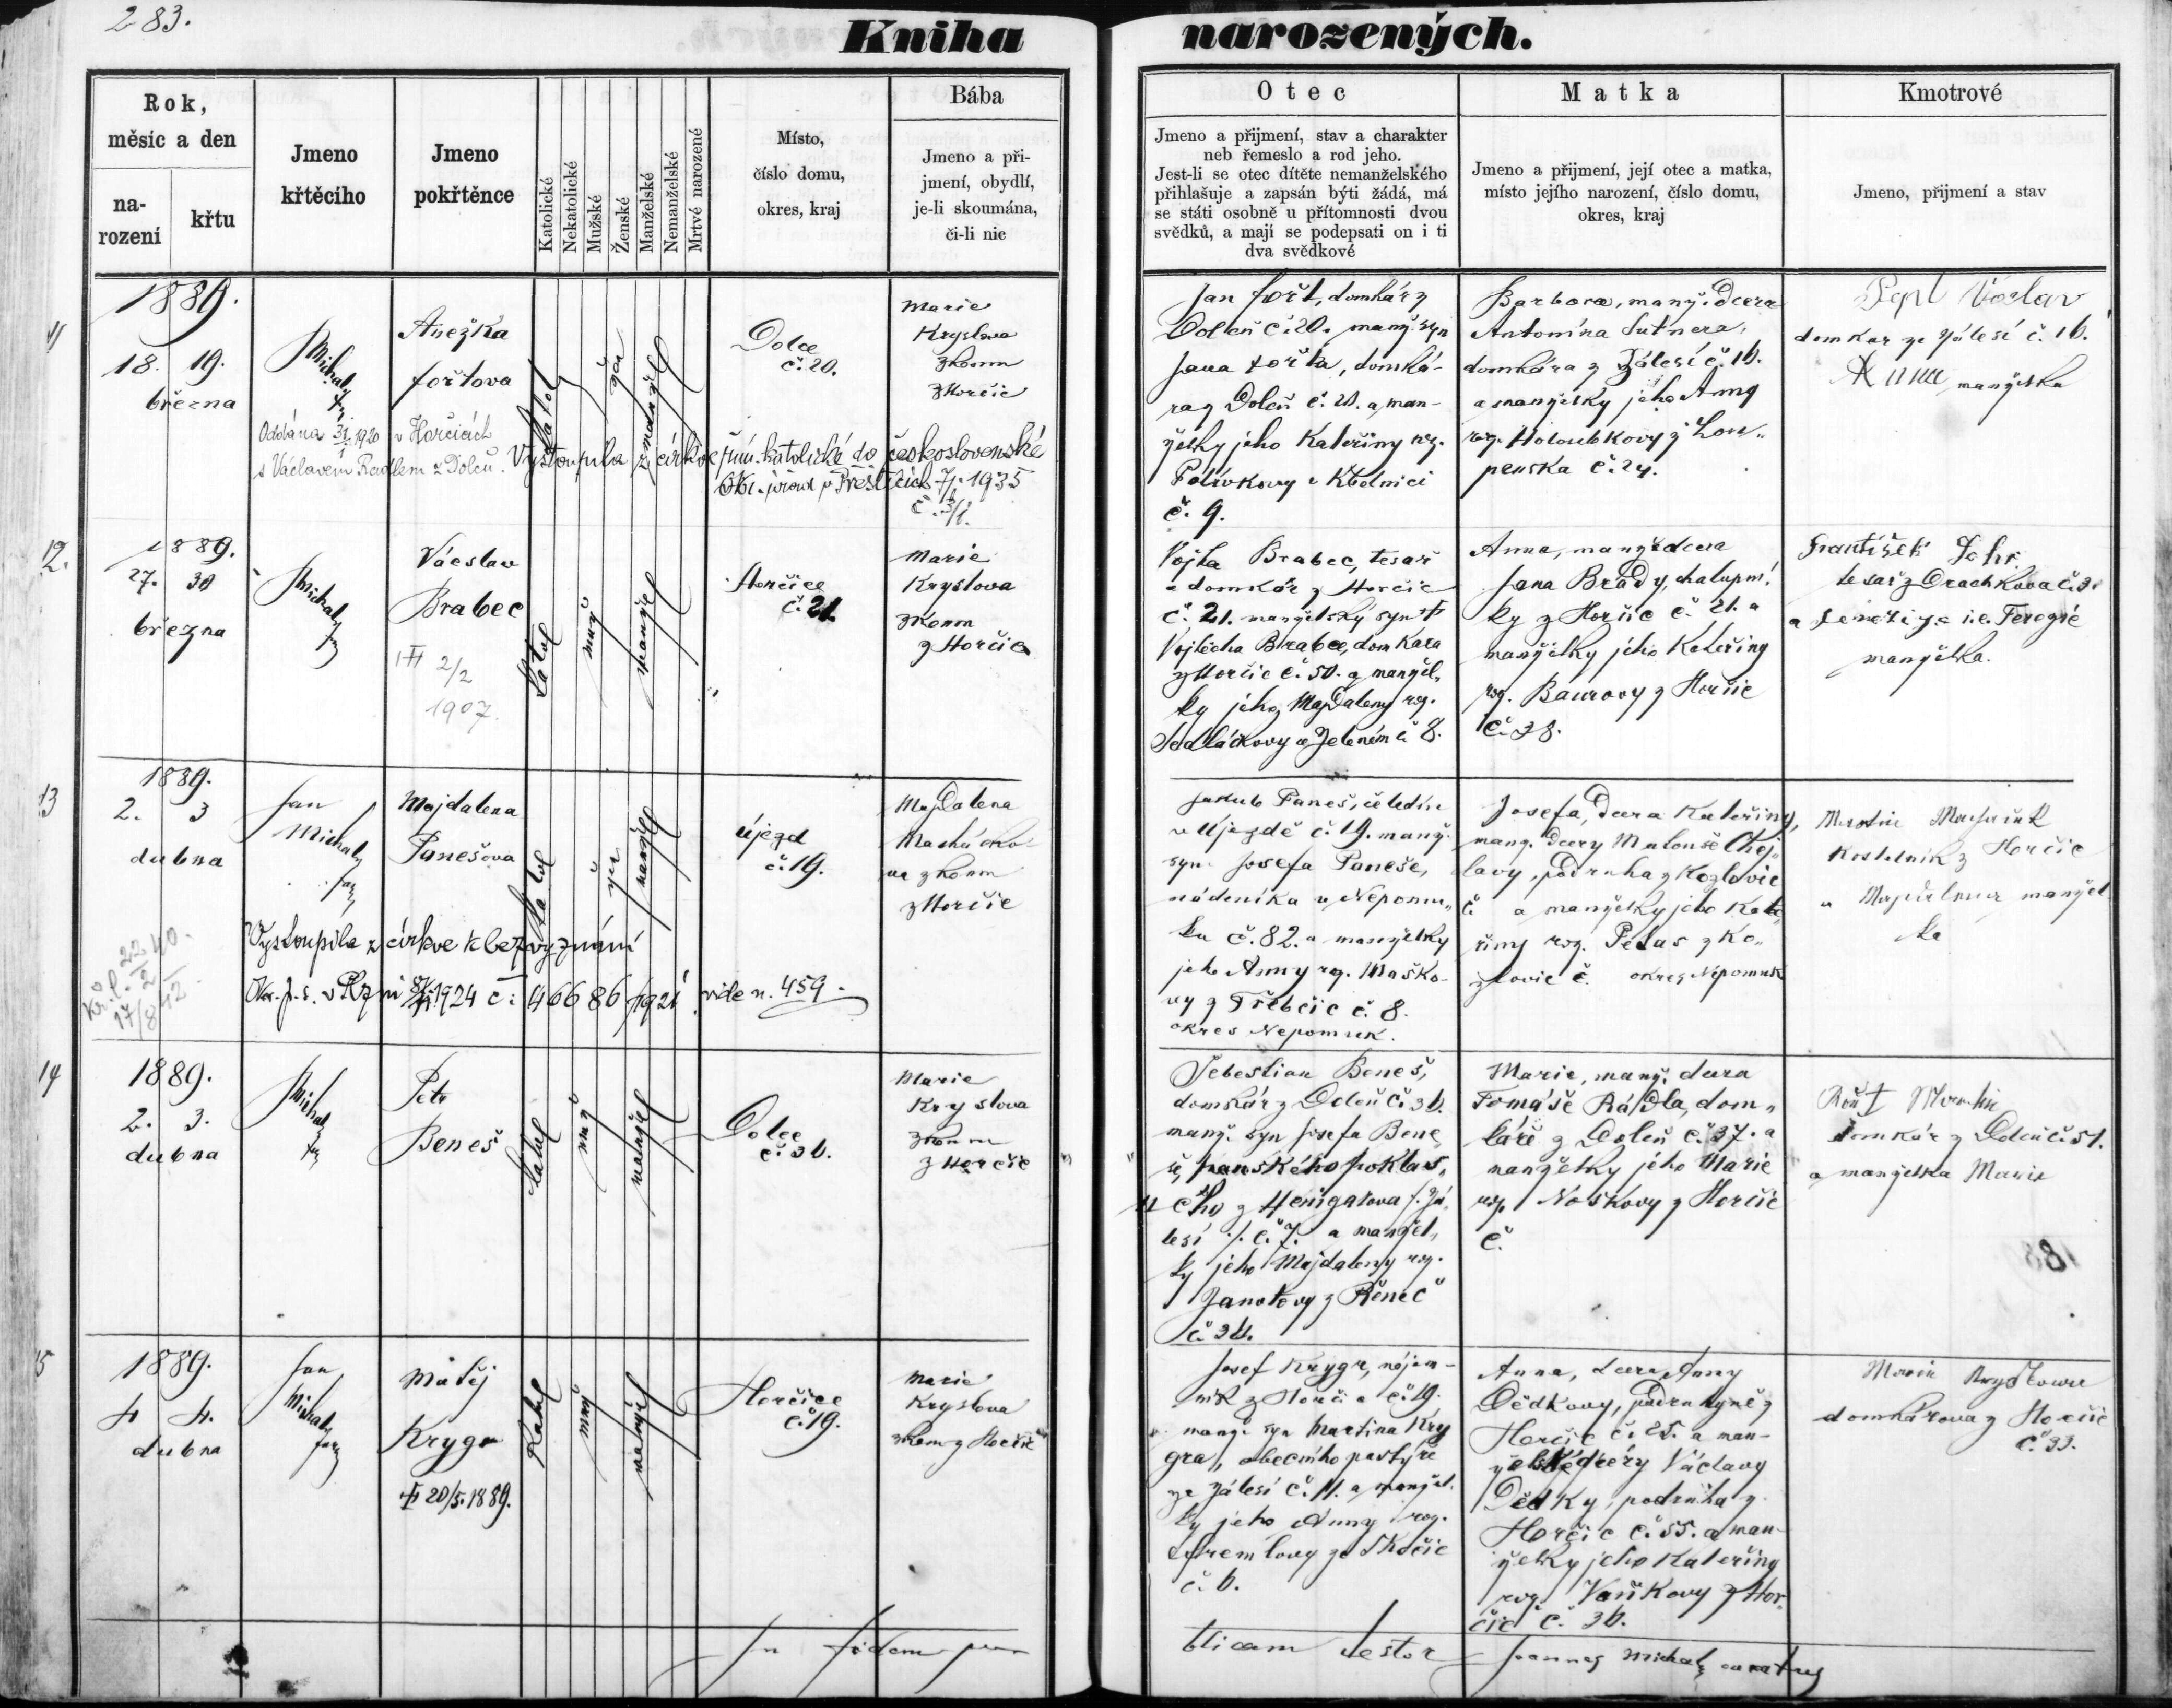 283.
Kniha narozených.
Rok,
měsíc a den
na-
rození
křtu
Jmeno
křtěcího
Jmeno
pokřtěnce
Katolické
Nekatolické
Mužské
Ženské
Manželské
Nemanželské
Mrtvé narozené
Místo,
číslo domu,
okres, kraj
Bába
Jmeno a při-
jmení, obydlí,
je-li skoumána,
či-li nic
Otec
Jmeno a přijmení, stav a charakter
neb řemeslo a rod jeho.
Jest-li se otec dítěte nemanželského
přihlašuje a zapsán býti žádá, má
se státi osobně u přítomnosti dvou
svědků, a mají se podepsati on i ti
dva svědkové
Matka
Jmeno a přijmení, její otec a matka,
místo jejího narození, číslo domu,
okres, kraj
Kmotrové
Jmeno, přijmení a stav
11
1889.
18. 19.
března
Michal
Anežka
Fořtova
Dolce
č. 20.
Marie
Kryslova
zkoum
z Horčic
Jan Fořt, domkář z
Dolců č. 20. manž. syn
Jana Fořta, domká-
ra z Dolců č. 20. a man-
želky jeho Kateřiny roz.
Polívkovy z Kbelnici
č. 9.
Barbora, manž. dcera
Antonína
domkáře z Zálesí č. 16.
a manželky jeho Anny
roz. Holoubkovy z Lou-
penska č. 24.
Václav
domkař ze Zálesí č. 16.
Anna manželka
Oddána 1920 v Horčicích
s Václavem z Dolců.
Vystoupila z církve řím. katolické do československé
Okr. úřad v Přešticích 1935
12.
1889.
27. 30
března
Michal
Václav
Brabec
2/2
1907
katol
manžel
Horčice
č. 21.
Marie
Kryslova
zkoum
z Horčic
Vojta Brabec, tesař
a domkář z Horčic
č. 21. manželský syn †
Vojtěcha Brabce, domkaře
z Horčic č. 50. a manžel-
ky jeho Majdaleny roz.
Sedláčkovy z Zeleném č 8.
Anna, manž dcera
Jana Brady, chalupní-
ky z Horčic č. 21. a
manželky jeho Kateřiny
roz. Baurovy z Horčic
č. 38.
František
tesař z
manželka.
13
1889.
2. 3
dubna
Jan
Michal
far
Majdalena
Panešova
katol
manžel
Újezd
č. 19.
Majdalena
zkoum
z Horčic
Jakub Paneš, čeledín
v Újezdě č. 19. manž.
syn Josefa Paneše,
nádeníka v Nepomu-
ku č. 82. a manželky
jeho Anny roz. Maško-
vy z Třebčic č. 8.
okres Nepomuk.
Josefa, dcera Kateřiny,
manž. dcery Matouše Choj-
lavy, podruha z Kozlovic
č. a manželky jeho Kate-
řiny roz. z Ko-
zlovic č. okres Nepomuk
Martin
Kostelník z Horčic
a Majdalena manžel
ka
Vystoupila z církve k bezvyznání
1924 č. 46686/1924 vide n. 459.
17/8 42
14
1889.
2. 3.
dubna
Michal
Petr
Beneš
katol
manžel
Dolce
č. 36.
Marie
Kryslova
zkoum
z Horčic
Šebestian Beneš,
domkář z Dolců č. 36.
manž. syn Josefa Bene
še, panského poklas-
ného z Henigarova /: Zá-
lesí :/ č. 7. a manžel-
ky jeho Majdaleny roz.
Janotovy z Řeneč
č. 34.
Marie, manž. dcera
Tomáše Rádla, dom-
káře z Dolců č. 37. a
manželky jeho Marie
roz. Noskovy z Horčic
č.
Martin
domkář z Dolců č. 51.
a manželka Marie
15
1889.
4 4.
dubna
Jan
Michal
far
Matěj
Krygr
† 20/5. 1889.
Katol
manžel
Horčice
č. 19.
Marie
Kryslova
zkoum z Horčic
Josef Krygr, nájem-
ník z Horčic č. 19.
manž. syn Martina Kry
gra, obecního pastýře
ze Zálesí č. 11. a manžel-
ky jeho Anny roz.
ze Skočic
č. 6.
Anna, dcera Anny
Dědkovy, podruhyně z
Horčic č. 25. a man-
želské dcery Václava
Dědky, podruha z
Horčic č. 55. a man-
želky jeho Kateřiny
roz. Vaňkovy z Hor-
čic č. 36.
Marie Kryslova
domkářova z Horčic
č. 33.
In fidem publicam testor Joannes Michal curatus